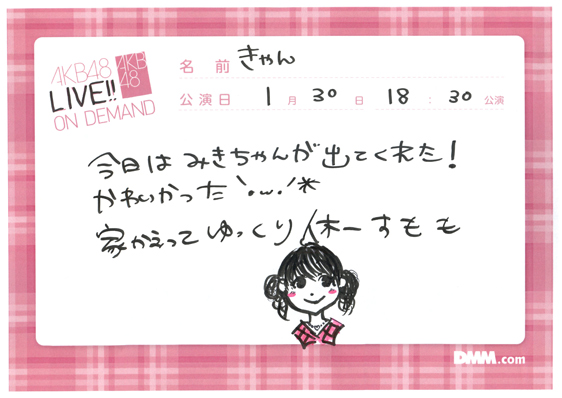 AKB48
LIVE!!
ON DEMAND
AKB
48
名 前 きゃん
公演日 1 月 30 日 18 : 30 公演
今日は みきちゃんが 出てくれた!
かわいかった '・ω・'*
家かえって ゆっくり 休ーすもも
DMM.com